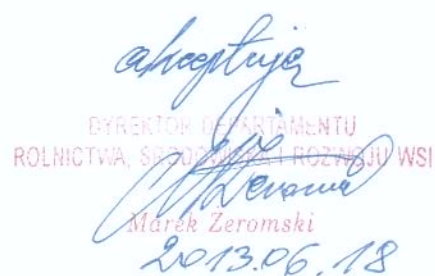 akceptuję
DYREKTOR DEPARTAMENTU
ROLNICTWA, ŚRODOWISKA I ROZWOJU WSI
Marek Zeromski
2013.06.18